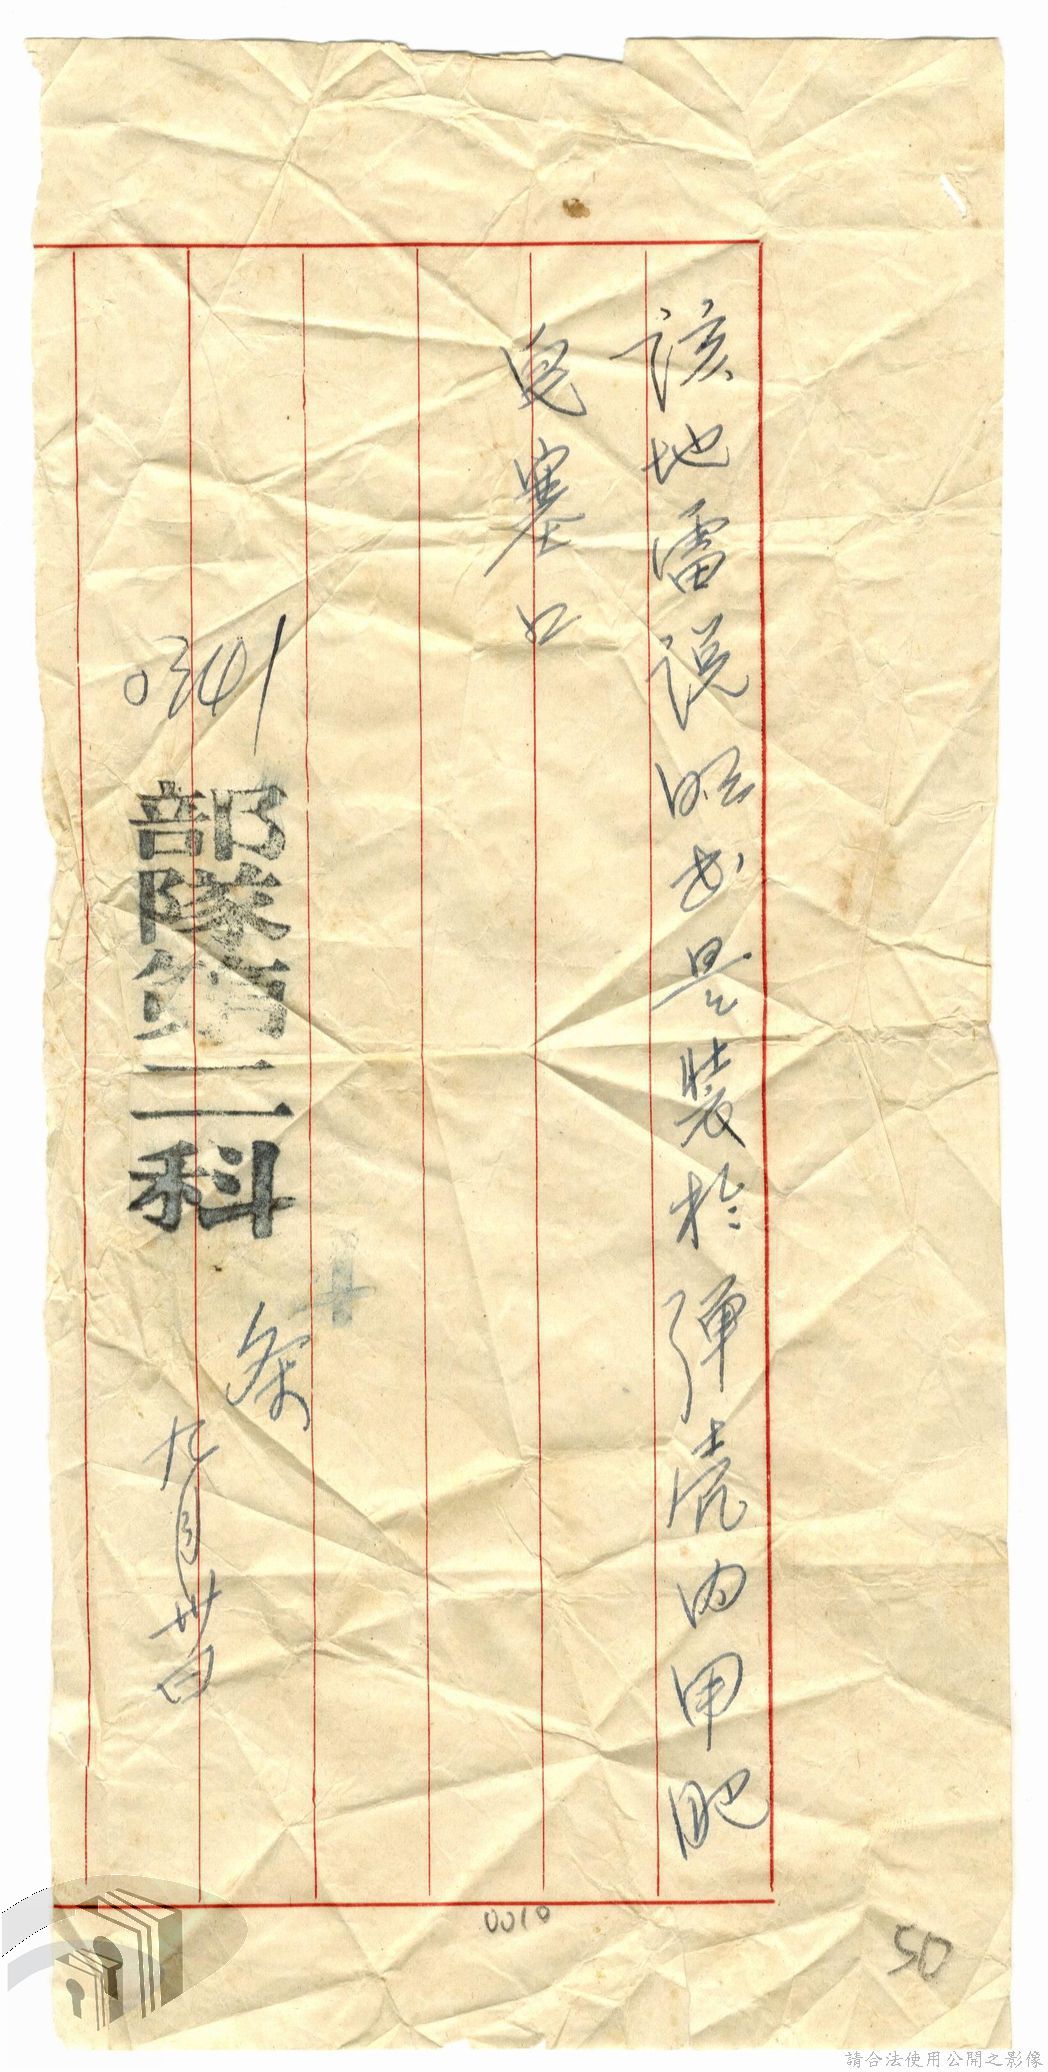 該地雷説明書是裝於彈壳内用肥
皂塞口
0341
部隊第二科
条
九月廿
0010
50
請合法使用公開之影像